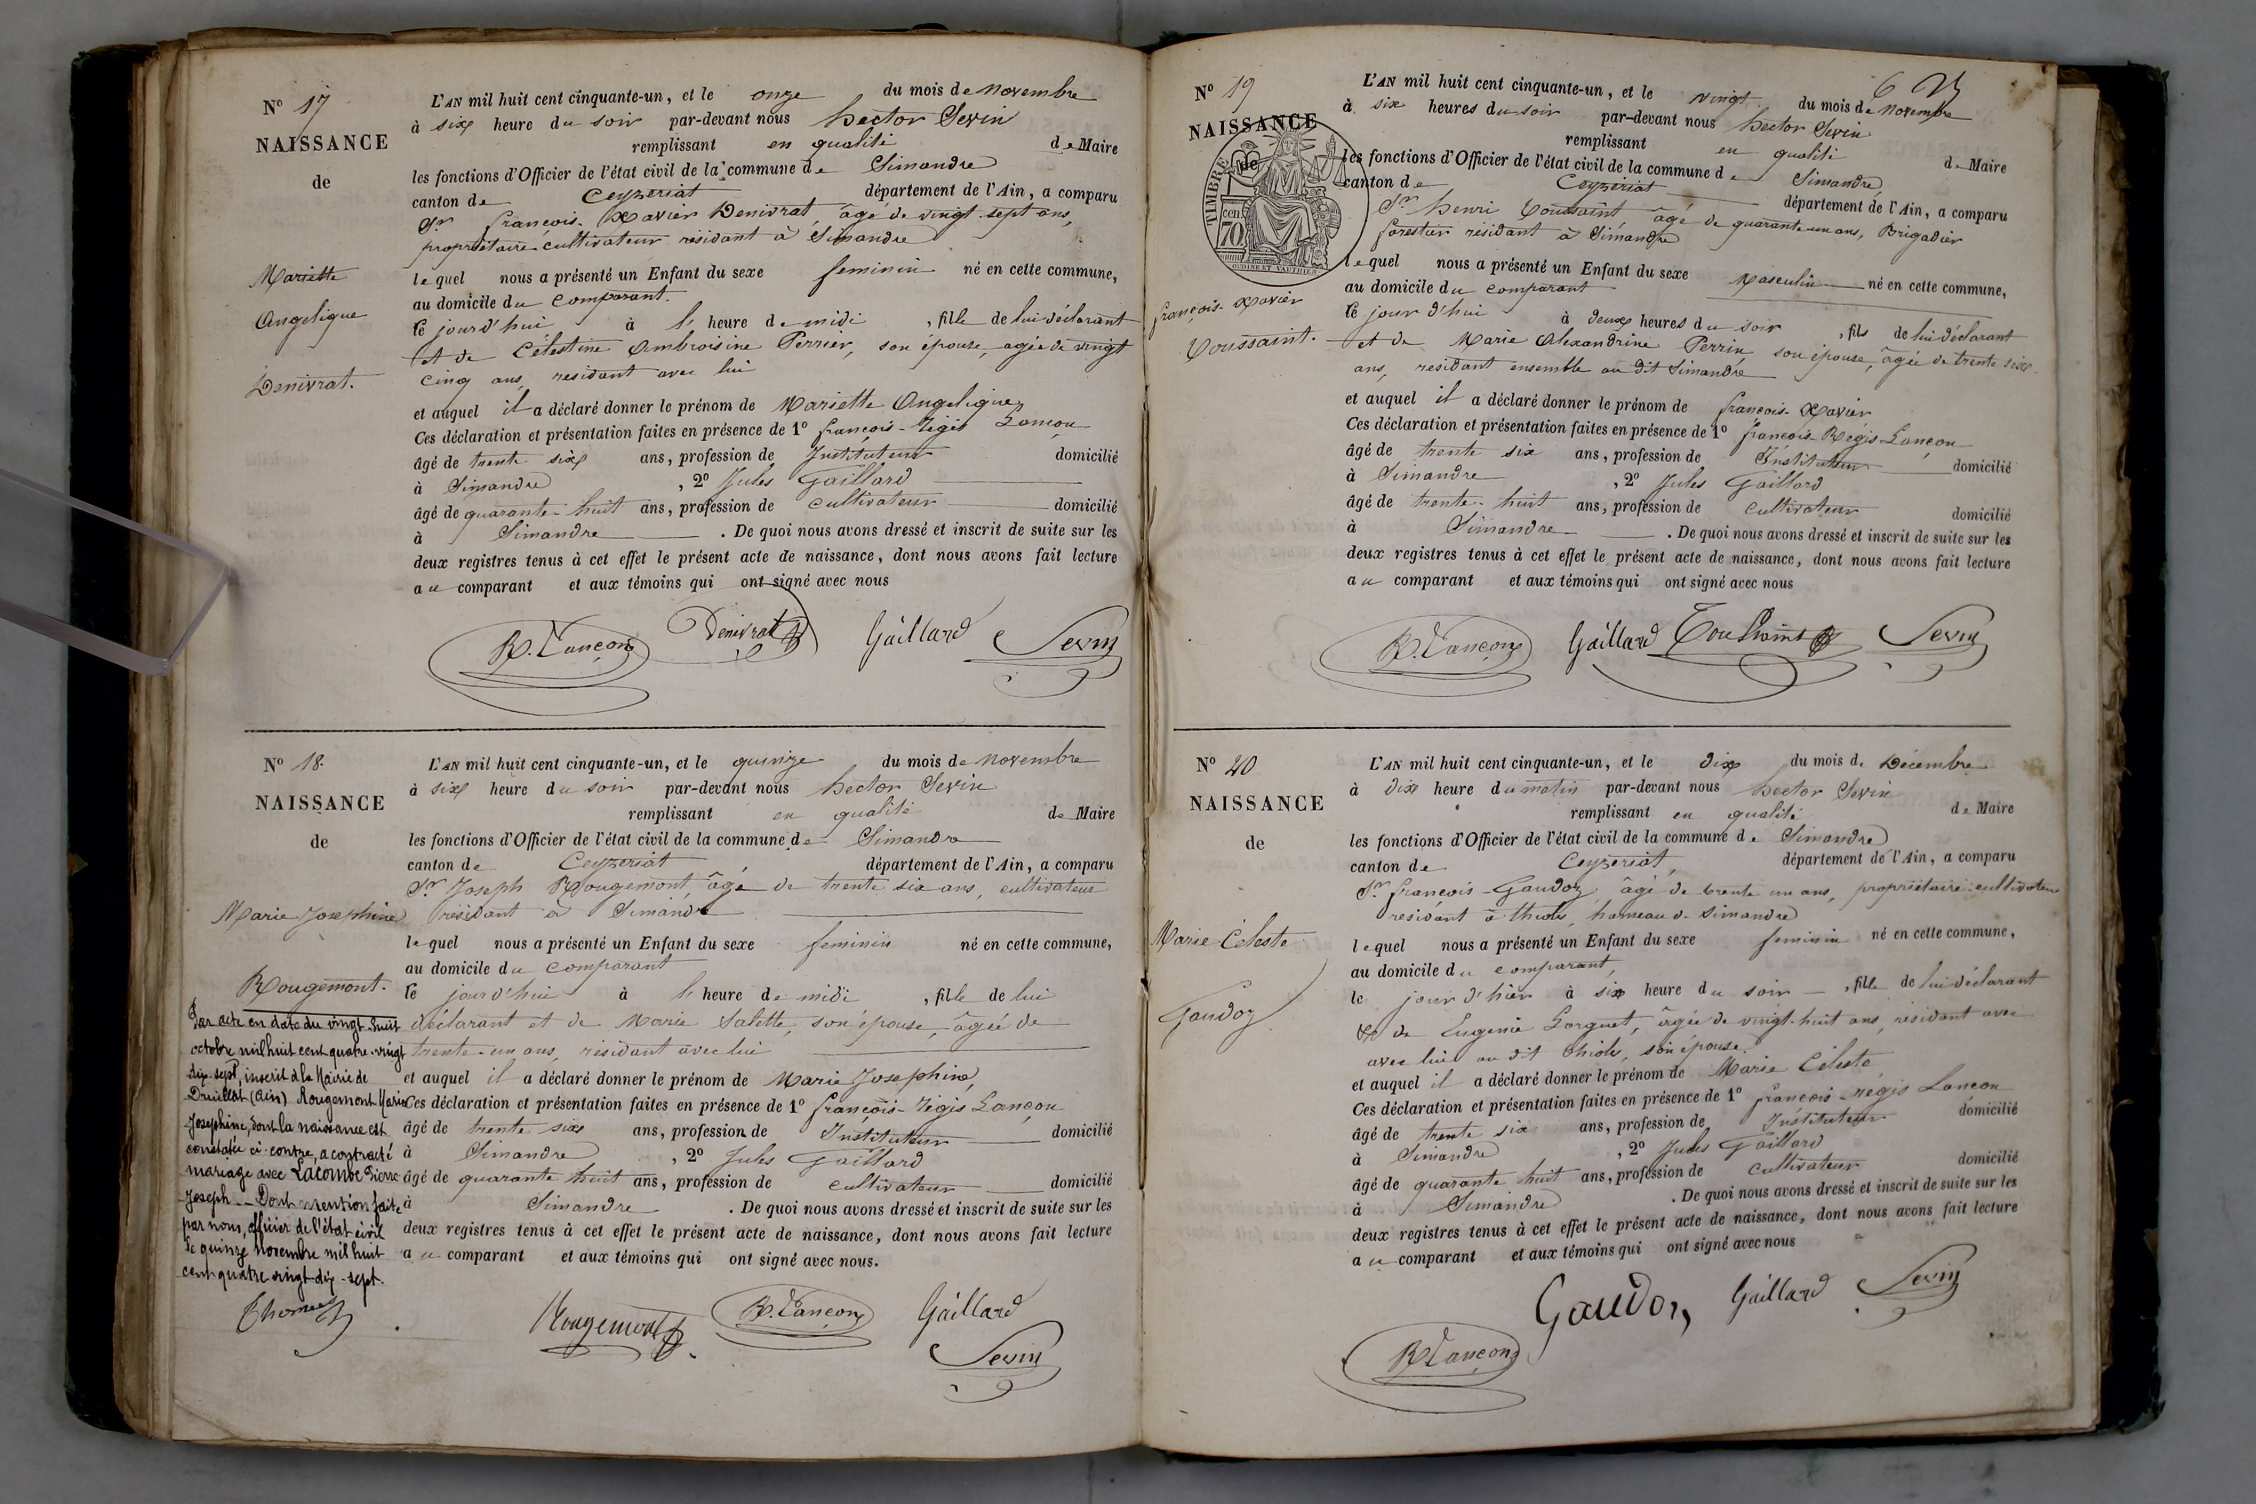 N° 17
NAISSANCE
de
Mariette
Angelique
Denivrat.
L'AN mil huit cent cinquante-un, et le onze du mois de novembre
à six heure du soir par-devant nous hector Sevin
remplissant en qualité de Maire
les fonctions d'Officier de l'état civil de la commune de Simandre
canton de Ceyzeriat département de l'Ain, a comparu
Sr françois-Xavier Denivrat, âgé de vingt-sept ans,
propriétaire-cultivateur résidant à Simandre
lequel nous a présenté un Enfant du sexe feminin né en cette commune,
au domicile du comparant.
le jour d'hui à heure de midi, fille de lui déclarant
et de Célestine Ambroisine Perrier, son épouse, agée de vingt
cinq ans, residant avec lui
et auquel il a déclaré donner le prénom de Mariette Angelique,
Ces déclaration et présentation faites en présence de 1° françois-régis Lançon
âgé de trente six ans, profession de Instituteur domicilié
à Simandre, 2° Jules Gaillard
âgé de quarante-huit ans, profession de cultivateur domicilié
à Simandre. De quoi nous avons dressé et inscrit de suite sur les
deux registres tenus à cet effet le présent acte de naissance, dont nous avons fait lecture
au comparant et aux témoins qui ont signé avec nous
R. Lançon Denivrat Gaillard Sevin
N° 18.
NAISSANCE
de
Marie Josephine
Rougemont.
Par acte en date du vingt-huit
octobre mil huit cent quatre-vingt
dix-sept, inscrit à la Mairie de
Druillat (Ain) Rougemont Marie
Josephine, dont la naissance est
constatée ci-contre, a contracté
mariage avec Lacombe Pierre
Joseph -- Dont mention faite
par nous, officier de l'état civil
le quinze novembre mil huit
cent quatre vingt dix-sept.
L'AN mil huit cent cinquante-un, et le quinze du mois de novembre
à six heure du soir par-devant nous hector Sevin
remplissant en qualité de Maire
les fonctions d'Officier de l'état civil de la commune de Simandre
canton de Ceyzeriat, département de l'Ain, a comparu
Sr Joseph Rougemont, âgé de trente six ans, cultivateur
résidant à Simandre
lequel nous a présenté un Enfant du sexe feminin né en cette commune,
au domicile du comparant
le jour d'hui à heure de midi, fille de lui
déclarant et de Marie Salette, son épouse, âgée de
trente-un ans, résidant avec lui
et auquel il a déclaré donner le prénom de Marie Josephine,
Ces déclaration et présentation faites en présence de 1° françois-régis Lançon
âgé de trente six ans, profession de Instituteur domicilié
à Simandre, 2° Jules Gaillard
âgé de quarante huit ans, profession de cultivateur domicilié
à Simandre. De quoi nous avons dressé et inscrit de suite sur les
deux registres tenus à cet effet le présent acte de naissance, dont nous avons fait lecture
au comparant et aux témoins qui ont signé avec nous.
Rougemont R. Lançon Gaillard
Sevin
N° 19
NAISSANCE
de
TIMBRE
cen. 70
OUDINE ET VAUTHIER
françois-Xavier
Toussaint.
L'AN mil huit cent cinquante-un, et le vingt du mois de novembre
à six heures du soir par-devant nous hector Sevin
remplissant en qualité de Maire
les fonctions d'Officier de l'état civil de la commune de Simandre
canton de Ceyzeriat département de l'Ain, a comparu
Sr henri Toussaint, âgé de quarante-un ans, Brigadier
forestier résidant à Simandre
lequel nous a présenté un Enfant du sexe Masculin né en cette commune,
au domicile du comparant
le jour d'hui à deux heures du soir, fils de lui déclarant
et de Marie Alexandrine Perrin son épouse, âgée de trente six
ans, residant ensemble au dit Simandre
et auquel il a déclaré donner le prénom de françois-Xavier
Ces déclaration et présentation faites en présence de 1° françois-Régis Lançon
âgé de trente six ans, profession de Instituteur domicilié
à Simandre, 2° Jules Gaillard
âgé de trente-huit ans, profession de cultivateur domicilié
à Simandre. De quoi nous avons dressé et inscrit de suite sur les
deux registres tenus à cet effet le présent acte de naissance, dont nous avons fait lecture
au comparant et aux témoins qui ont signé avec nous
R. Lançon Gaillard Toussaint Sevin
N° 20
NAISSANCE
de
Marie Céleste
Gaudoz
L'AN mil huit cent cinquante-un, et le dix du mois de Décembre
à dix heure du matin par-devant nous hector Sevin
remplissant en qualité de Maire
les fonctions d'Officier de l'état civil de la commune de Simandre
canton de Ceyzeriat, département de l'Ain, a comparu
Sr françois-Gaudoz âgé de trente un ans, propriétaire-cultivateur
residant à thiole, hameau de Simandre
lequel nous a présenté un Enfant du sexe feminin né en cette commune,
au domicile du comparant,
le jour d'hier à six heure du soir, fille de lui déclarant
et de Eugenie Lorguet, âgée de vingt-huit ans, résidant avec
avec lui au dit thiole, son épouse.
et auquel il a déclaré donner le prénom de Marie Céleste
Ces déclaration et présentation faites en présence de 1° françois-régis Lançon
âgé de trente six ans, profession de Instituteur domicilié
à Simandre, 2° Jules Gaillard
âgé de quarante huit ans, profession de cultivateur domicilié
à Simandre. De quoi nous avons dressé et inscrit de suite sur les
deux registres tenus à cet effet le présent acte de naissance, dont nous avons fait lecture
au comparant et aux témoins qui ont signé avec nous
Gaudoz Gaillard Sevin
R Lançon